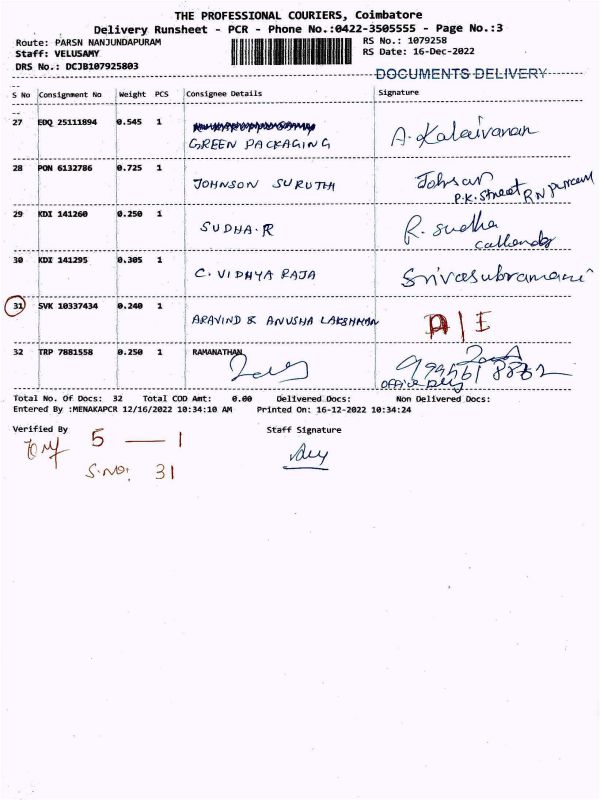 THE PROFESSIONAL COURIERS, Coimbatore
Delivery Runsheet - PCR - Phone No.:0422-3505555 - Page No.:3
Route: PARSN NANJUNDAPURAM RS No.: 1079258
Staff: VELUSAMY RS Date: 16-Dec-2022
DRS No.: DCJB107925803
DOCUMENTS DELIVERY
S No Consignment No Weight PCS Consignee Details Signature
27 EDQ 25111894 0.545 1
GREEN PACKAGING A. Kalaivanan
28 PON 6132786 0.725 1
JOHNSON SURUTH Johson
P.K. Street RN puram
29 KDI 141260 0.250 1
SUDHA.R R. sudha
30 KDI 141295 0.305 1
C. VIDHYA RAJA Srivasubramani
31 SVK 10337434 0.240 1
ARAVIND & ANUSHA LAKSHMAN D/E
32 TRP 7881558 0.250 1 RAMANATHAN
Total No. Of Docs: 32 Total COD Amt: 0.00 Delivered Docs: Non Delivered Docs:
Entered By :MENAKAPCR 12/16/2022 10:34:10 AM Printed On: 16-12-2022 10:34:24
Verified By Staff Signature
5 — 1
S.NO: 31